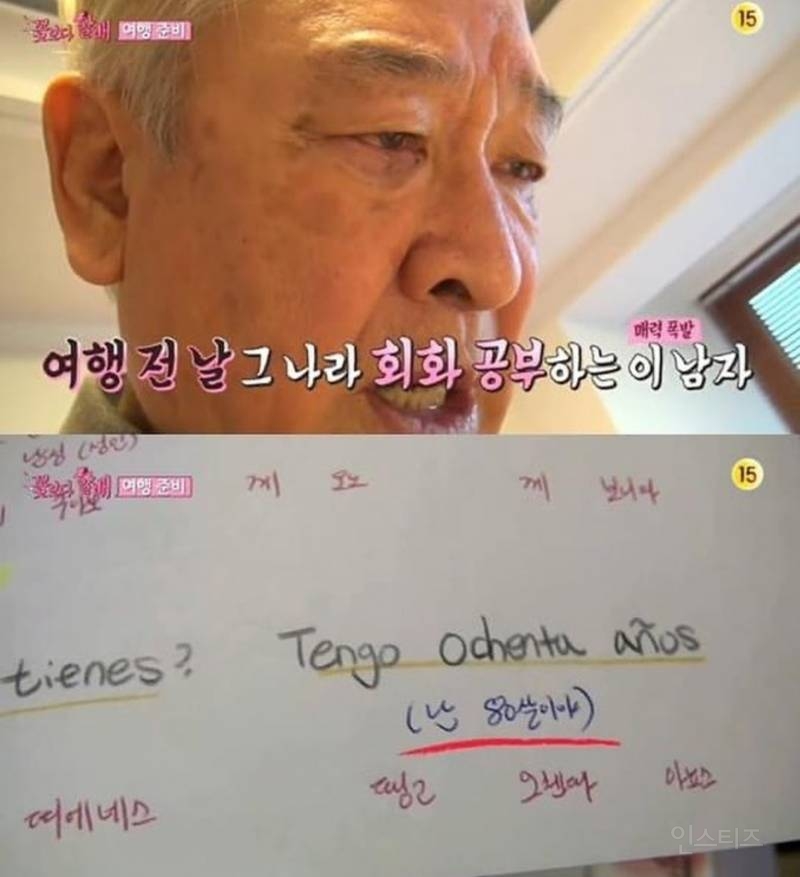 꽃보다 할배 여행 준비
15
매력 폭발
여행 전 날 그 나라 회화 공부하는 이 남자
남성 (성인)
꽃보다 할배 여행 준비
15
께 모노 께 보니따
tienes? Tengo ochenta años
(난 80살이야)
띠에네스 땡고 오첸따 아뇨스
인스티즈